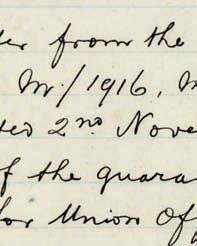 er from the
M/1916, M
ted 2nd Nove
f the quara
lor Union Of